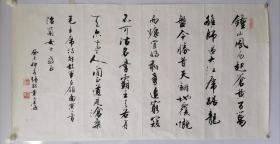 鐘山風雨起蒼黃百萬
雄師過大江虎踞龍
盤今勝昔天翻地覆慨
而慷宜將剩勇追窮寇
不可沽名學霸王天若有
情天亦老人間正道是滄桑
毛主席詩人民解放軍占領南京
女士